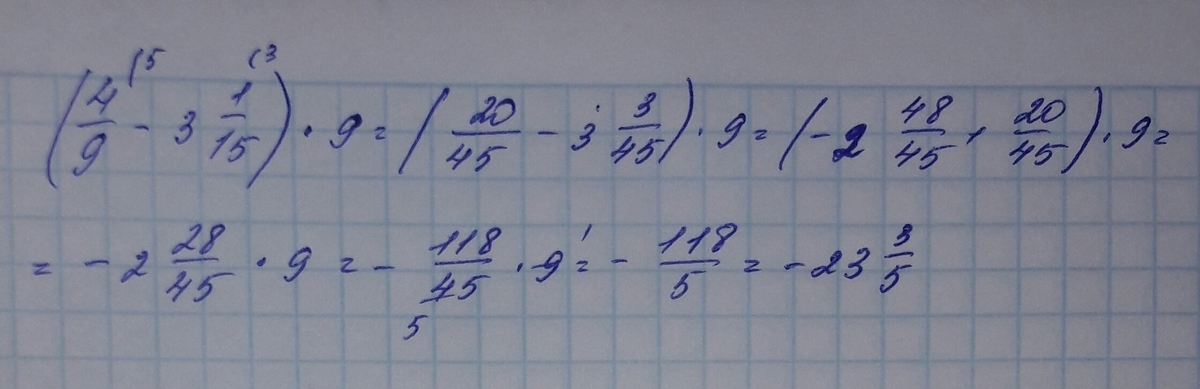 (4/9 (5 - 3 1/15 (3) · 9 = (20/45 - 3 3/45) · 9 = (-2 48/45 + 20/45) · 9 =
= -2 28/45 · 9 = - 118/45 5 · 9 1 = - 118/5 = -23 3/5